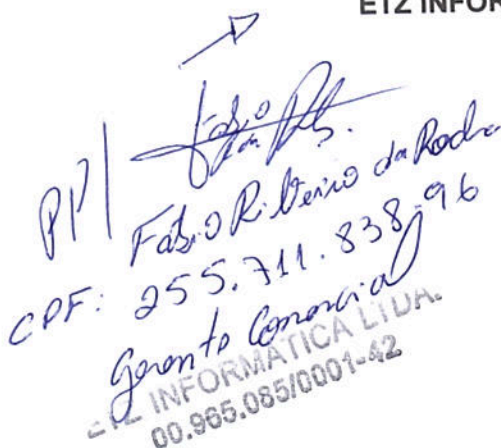 ETZ INFOR
PP/ Fabio da Rb.
Fabio Ribeiro da Rocha
CPF: 255.711.838-96
Gerente Comercial
ETZ INFORMÁTICA LTDA.
00.965.085/0001-42